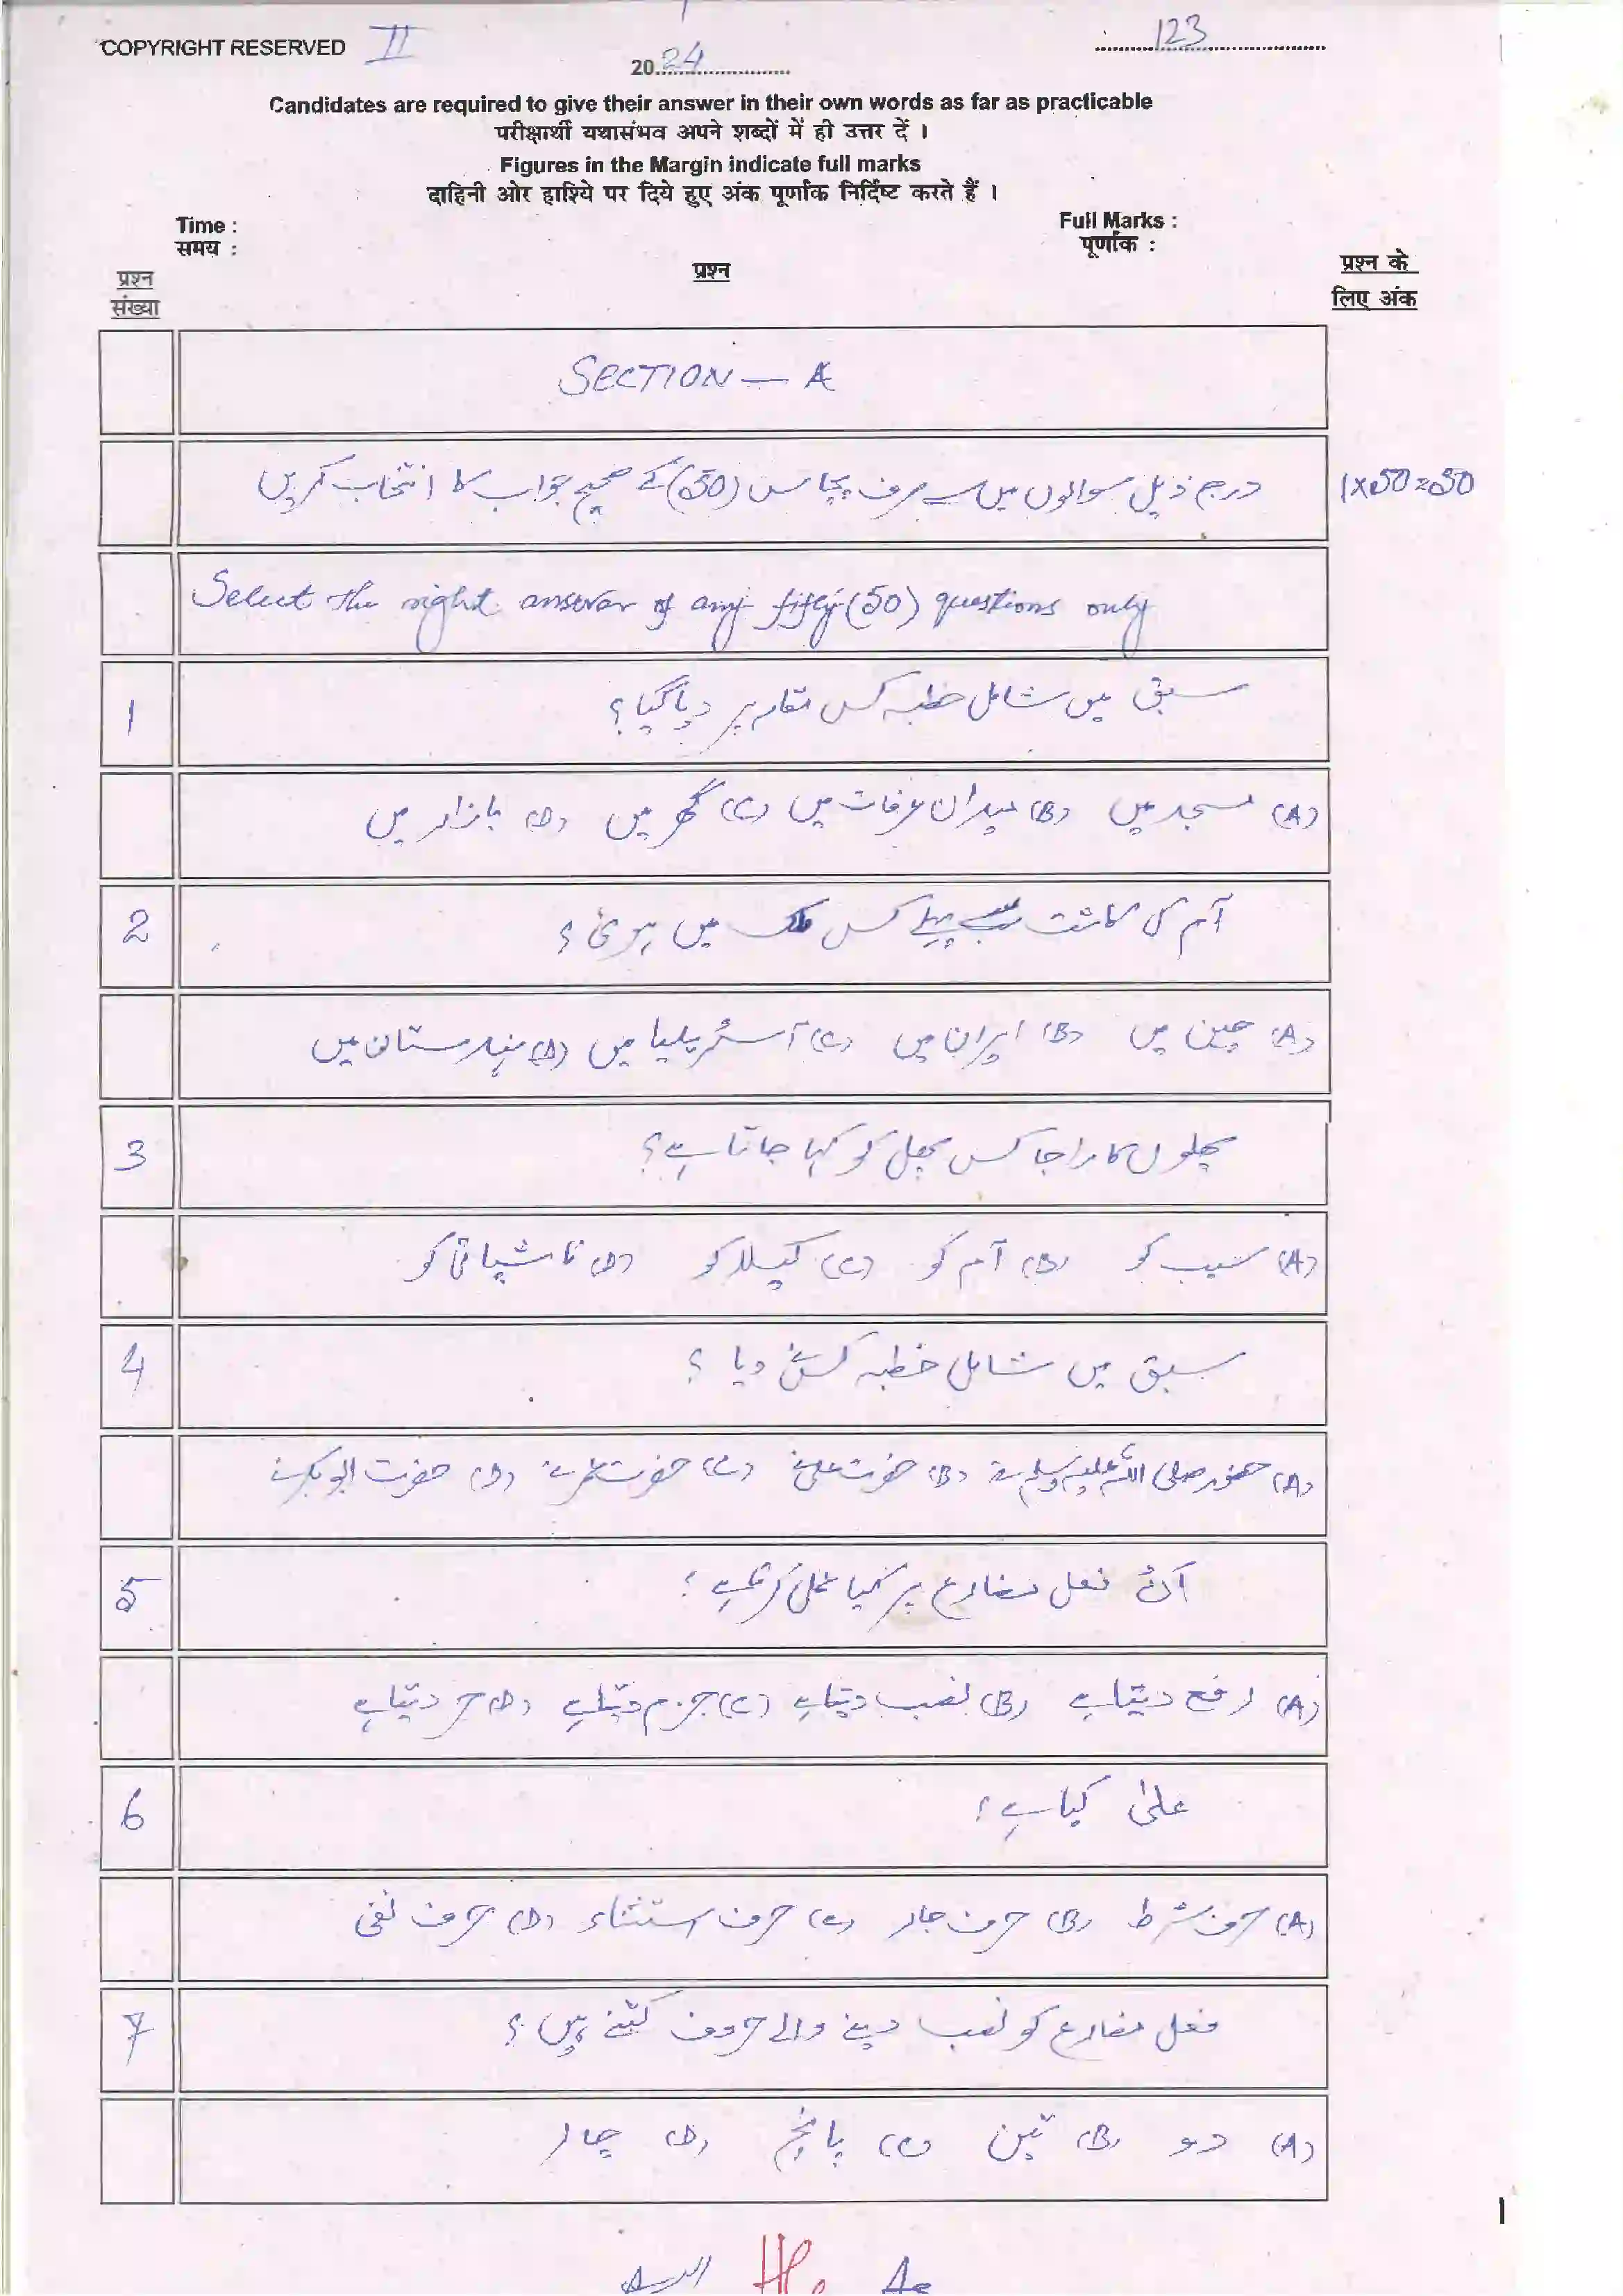 COPYRIGHT RESERVED II
2024
123
Candidates are required to give their answer in their own words as far as practicable
परीक्षार्थी यथासंभव अपने शब्दों में ही उत्तर दें ।
Figures in the Margin indicate full marks
दाहिनी ओर हाशिये पर दिये हुए अंक पूर्णांक निर्दिष्ट करते हैं ।
Time :
समय :
Full Marks :
पूर्णांक :
प्रश्न संख्या
प्रश्न
प्रश्न के लिए अंक
SECTION — A
درج ذیل سوالوں میں سے صرف پچاس (50) کے صحیح جواب کا انتخاب کریں
1x50=50
Select the right answer of any fifty (50) questions only
1 سبق میں شامل خطبہ کس مقام پر دیا گیا؟
(A) مسجد میں (B) میدان عرفات میں (C) گھر میں (D) بازار میں
2 آم کی کاشت سب سے پہلے کس ملک میں ہوئی؟
(A) چین میں (B) ایران میں (C) آسٹریلیا میں (D) ہندوستان میں
3 پھلوں کا راجا کس پھل کو کہا جاتا ہے؟
(A) سیب کو (B) آم کو (C) کیلا کو (D) ناشپاتی کو
4 سبق میں شامل خطبہ کس نے دیا ؟
(A) حضور صلی اللہ علیہ وسلم نے (B) حضرت علی نے (C) حضرت عمر نے (D) حضرت ابو بکر نے
5 أن فعل مضارع پر کیا عمل کرتا ہے؟
(A) رفع دیتا ہے (B) نصب دیتا ہے (C) جزم دیتا ہے (D) جر دیتا ہے
6 علیٰ کیا ہے؟
(A) حرف شرط (B) حرف جار (C) حرف استثناء (D) حرف نفی
7 فعل مضارع کو نصب دینے والے حروف کتنے ہیں؟
(A) دو (B) تین (C) پانچ (D) چار
1